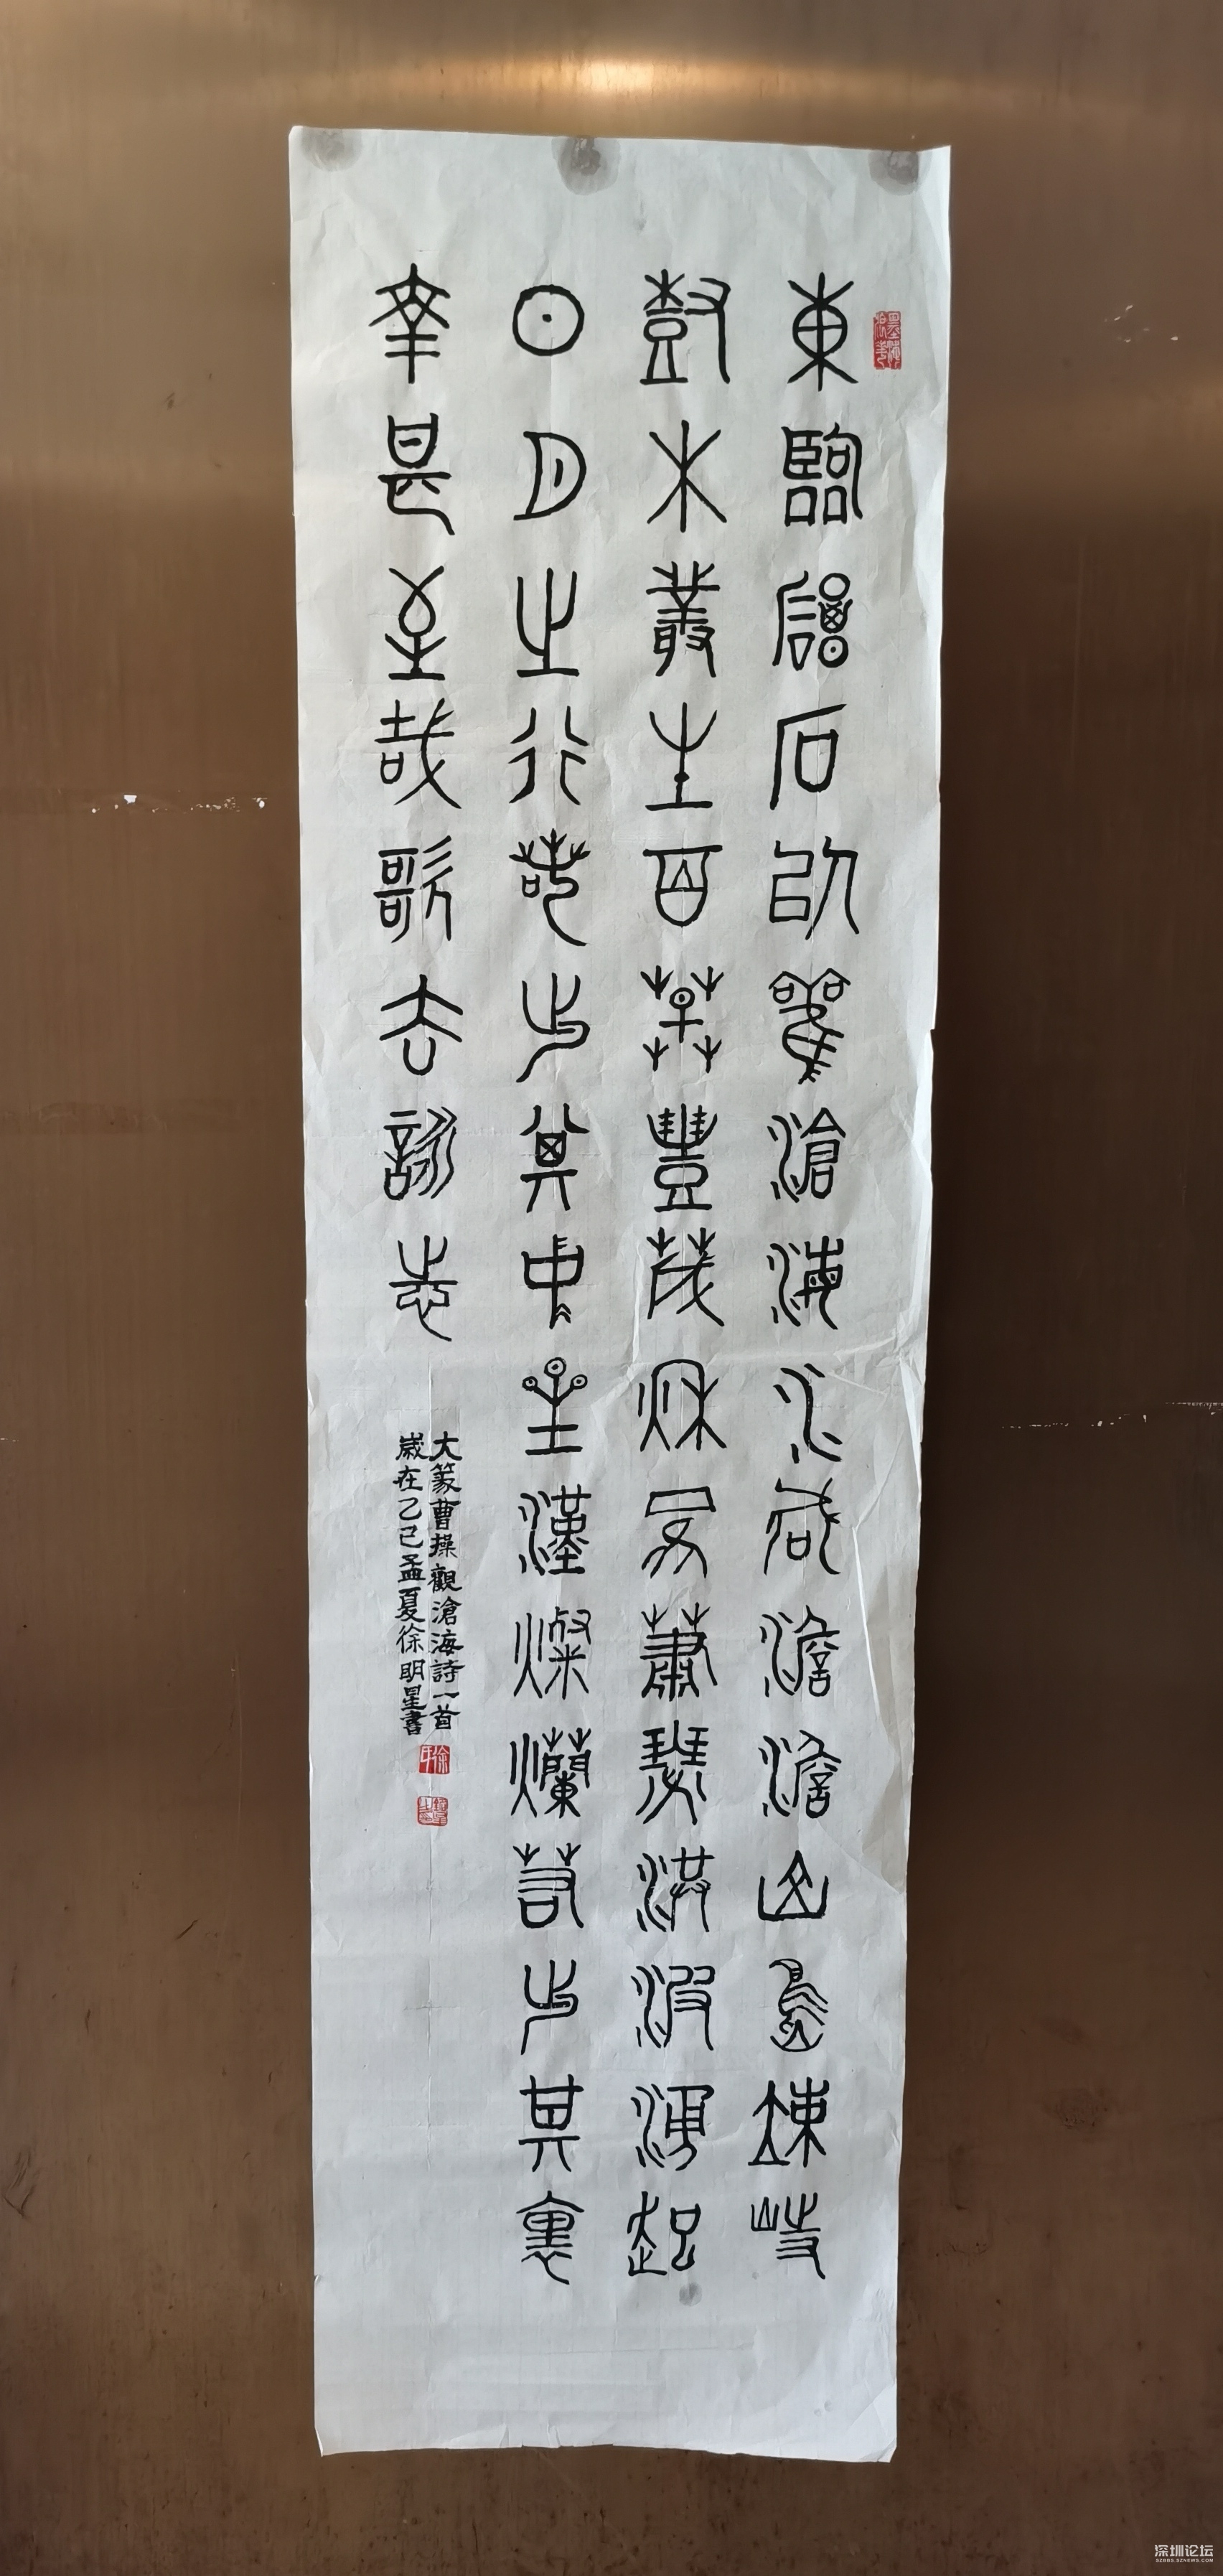 東臨碣石以觀滄海水何澹澹山島竦峙
樹木叢生百草豐茂秋風蕭瑟洪波湧起
日月之行若出其中星漢燦爛若出其裏
幸甚至哉歌去詠志
大篆曹操觀滄海詩一首
歲在乙巳孟夏徐明星書
深圳论坛
SZBBS.SZNEWS.COM